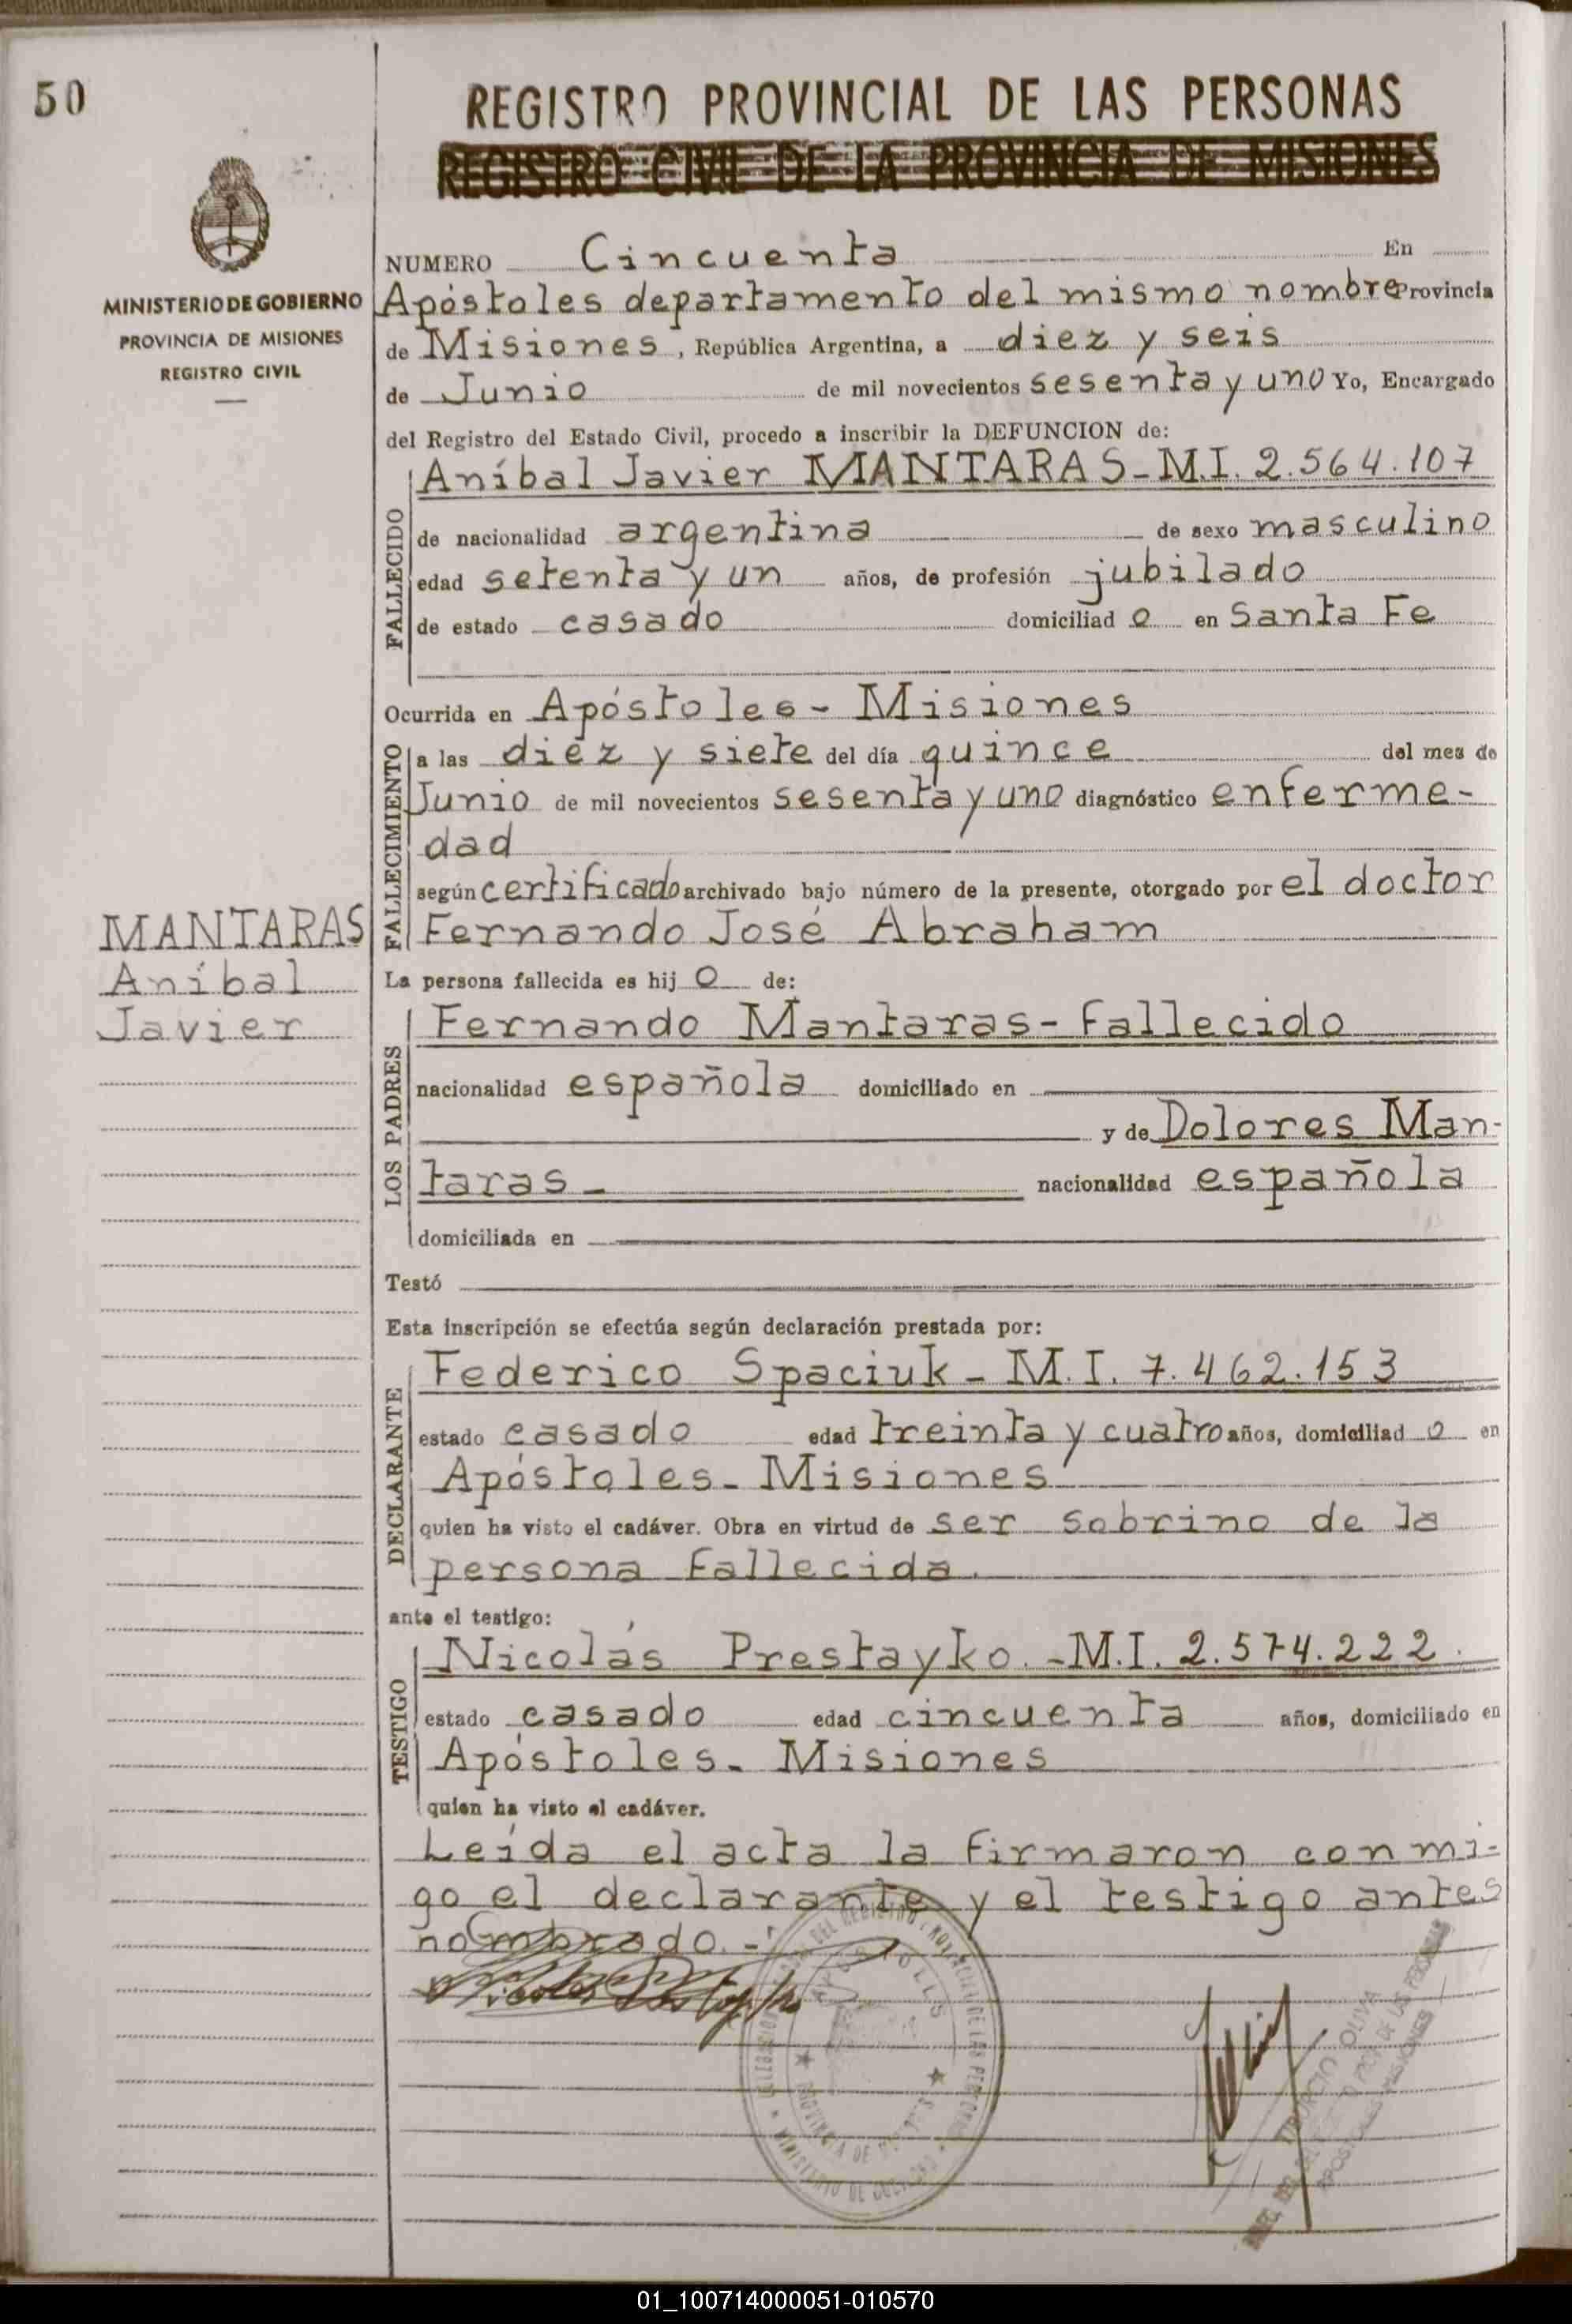 50
REGISTRO PROVINCIAL DE LAS PERSONAS
REGISTRO CIVIL DE LA PROVINCIA DE MISIONES
MINISTERIO DE GOBIERNO
PROVINCIA DE MISIONES
REGISTRO CIVIL
NUMERO Cincuenta En
Apóstoles departamento del mismo nombre Provincia
de Misiones, República Argentina, a diez y seis
de Junio de mil novecientos sesenta y uno Yo, Encargado
del Registro del Estado Civil, procedo a inscribir la DEFUNCION de:
FALLECIDO
Aníbal Javier MANTARAS-M.I. 2.564.107
de nacionalidad argentina de sexo masculino
edad setenta y un años, de profesión jubilado
de estado casado domiciliad o en Santa Fe
Ocurrida en Apóstoles - Misiones
FALLECIMIENTO
a las diez y siete del día quince del mes de
Junio de mil novecientos sesenta y uno diagnóstico enferme-
dad
según certificado archivado bajo número de la presente, otorgado por el doctor
Fernando José Abraham
MANTARAS
Aníbal
Javier
La persona fallecida es hij o de:
LOS PADRES
Fernando Mantaras-fallecido
nacionalidad española domiciliado en
y de Dolores Man-
taras - nacionalidad española
domiciliada en
Testó
Esta inscripción se efectúa según declaración prestada por:
DECLARANTE
Federico Spaciuk - M.I. 7.462.153
estado casado edad treinta y cuatro años, domiciliad o en
Apóstoles - Misiones
quien ha visto el cadáver. Obra en virtud de ser sobrino de la
persona fallecida.
ante el testigo:
TESTIGO
Nicolás Prestayko. -M.I. 2.574.222.
estado casado edad cincuenta años, domiciliado en
Apóstoles. Misiones
quien ha visto el cadáver.
Leída el acta la firmaron conmi-
go el declarante y el testigo antes
nombrado.-
APOSTOLES
PROVINCIA DE MISIONES
TIBURCIO OLIVA
APOSTOLES MISIONES
01_100714000051-010570